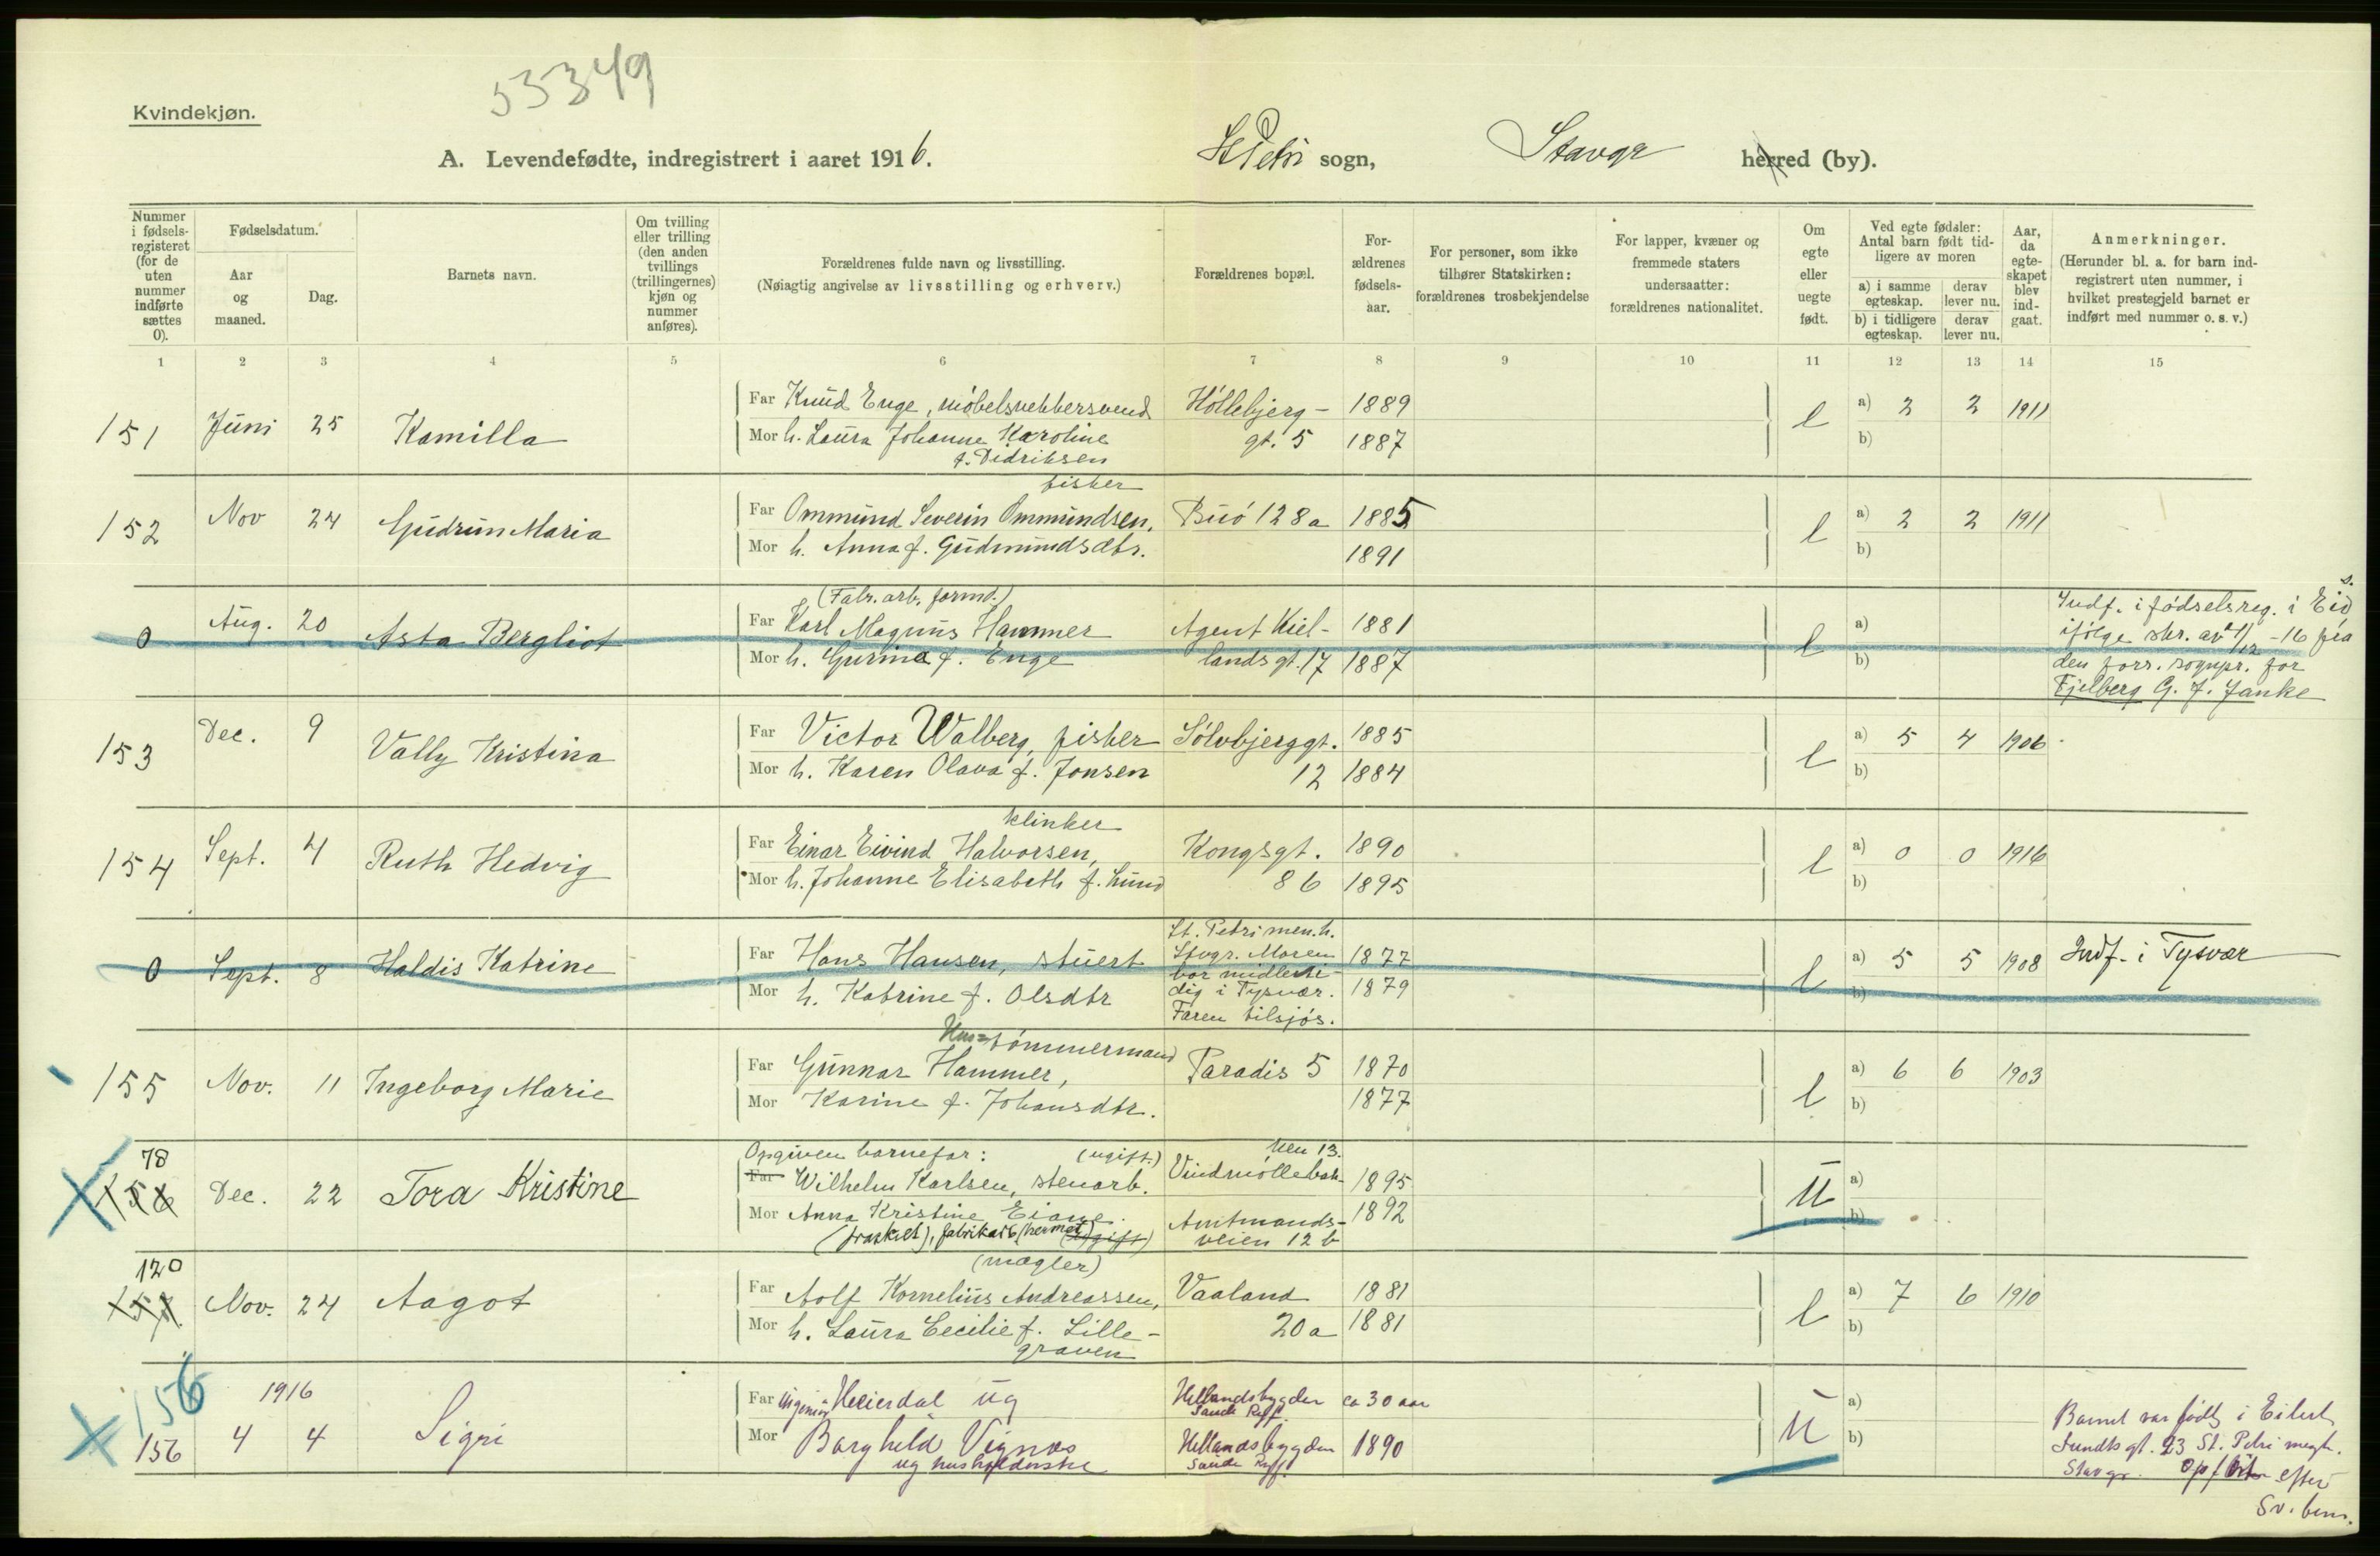 53349
Kvindekjøn.
A. Levendefødte, indregistrert i aaret 1916. St Petri sogn, Stavgr herred (by).
Nummer i fødsels-registeret (for de uten nummer indførte sættes 0).
Fødselsdatum.
Aar og maaned.
Dag.
Barnets navn.
Om tvilling eller trilling (den anden tvillings (trillingernes) kjøn og nummer anføres).
Forældrenes fulde navn og livsstilling.
(Nøiagtig angivelse av livsstilling og erhverv.)
Forældrenes bopæl.
For-ældrenes fødsels-aar.
For personer, som ikke tilhører Statskirken: forældrenes trosbekjendelse
For lapper, kvæner og fremmede staters undersaatter: forældrenes nationalitet.
Om egte eller uegte født.
Ved egte fødsler: Antal barn født tid-ligere av moren
a) i samme egteskap.
derav lever nu.
b) i tidligere egteskap.
derav lever nu.
Aar, da egte-skapet blev ind-gaat.
Anmerkninger.
(Herunder bl. a. for barn ind-registrert uten nummer, i hvilket prestegjeld barnet er indført med nummer o. s. v.)
1 2 3 4 5 6 7 8 9 10 11 12 13 14 15
Far Knud Enge, møbelsnekkersvend Høllebjerg- 1889
151 Juni 25 Kamilla l a) 2 2 1911
Mor h. Laura Johanne Karoline gt. 5 1887 b)
f. Didriksen
fisker
Far Ommund Severin Ommundsen, Buø 128a 1885
152 Nov 24 Gudrun Maria l a) 2 2 1911
Mor h. Anna f. Gudmundsdtr. 1891 b)
(Fabr. arb. formd.)
Far Karl Magnus Hammer Agent Kiel- 1881
0 Aug. 20 Asta Bergliot l a)
Mor h. Gurina f. Enge landsgt. 17 1887 b)
Indf. i fødselsreg. i Eid
s.
ifølge skr. av 21/12 -16 fra
den forr. sognpr. for
Fjelberg G. F. Janke
Far Victor Walberg, fisker Sølvbjerggt. 1885
153 Dec. 9 Vally Kristina l a) 5 4 1906
Mor h. Karen Olava f. Jonsen 12 1884 b)
klinker
Far Einar Eivind Halvorsen, Kongsgt. 1890
154 Sept. 4 Ruth Hedvig l a) 0 0 1916
Mor h. Johanne Elisabeth f. Lund 86 1895 b)
St. Petri men.h.
Far Hans Hansen, stuert Stvgr. Moren 1877
0 Sept. 8 Haldis Katrine bor midlerti- l a) 5 5 1908 Indf. i Tysvær
Mor h. Katrine f. Olsdtr dig i Tysvær. 1879 b)
Faren tilsjøs.
Hus=tømmermand
Far Gunnar Hammer, Paradis 5 1870
155 Nov. 11 Ingeborg Marie l a) 6 6 1903
Mor Karine f. Johansdtr. 1877 b)
Opgiven barnefar: (ugift.) ken 13.
78 Far Wilhelm Karlsen, stenarb. Vindmøllebak- 1895
156 Dec. 22 Tora Kristine U a)
Mor Anna Kristine Eiane. Amtmands- 1892 b)
(fraskilt), fabrikarb (hermet) (ugift) veien 12 b
(mægler)
120 Far Adolf Kornelius Andreassen, Vaaland 1881
157 Nov. 24 Aagot l a) 7 6 1910
Mor h. Laura Cecilie f. Lille- 20a 1881 b)
graven
156 1916 Far ingeniør Heierdal ug Hellandsbygden ca 30 aar
Saude Ryff.
156 4 4 Sigri U a)
Mor Borghild Vignæs Hellandsbygden 1890 b)
ug husholderske Saude Ryff.
Barnet var født i Eilert
Sundts gt. 23 St. Petri megh.
Stavgr. efter
Sv. bem.